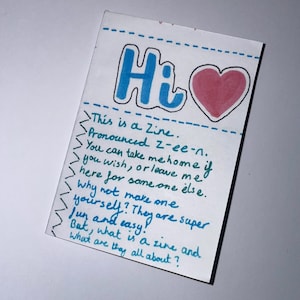 Hi
This is a Zine.
Pronounced Z-ee-n.
You can take me home if
you wish, or leave me
here for someone else.
Why not make one
yourself? They are super
fun and easy!
But, what is a zine and
What are they all about?